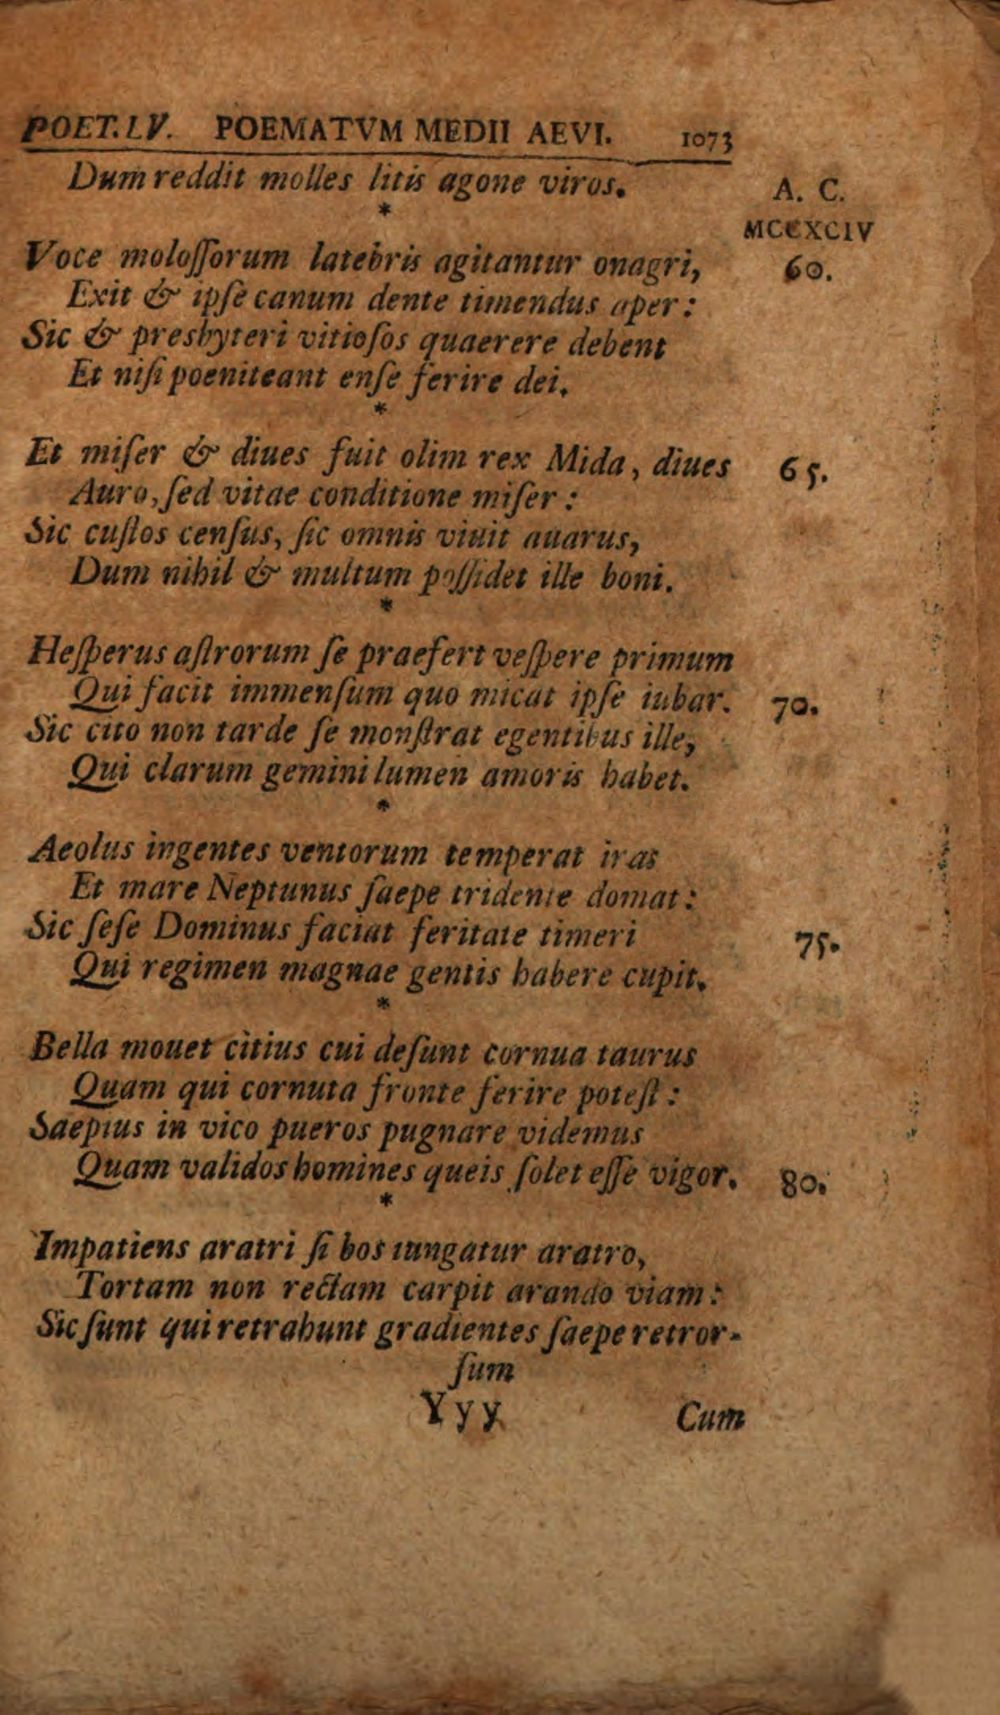 POET. LV. POEMATVM MEDII AEVI. 1073
Dum reddit molles litis agone viros. A. C.
*
MCCXCIV
Voce moloſſorum latebris agitantur onagri, 60.
Exit & ipſe canum dente timendus aper:
Sic & presbyteri vitioſos quaerere debent
Et niſi poeniteant enſe ferire dei.
*
Et miſer & diues fuit olim rex Mida, diues 65.
Auro, ſed vitae conditione miſer:
Sic cuſtos cenſus, ſic omnis viuit auarus,
Dum nihil & multum poſſidet ille boni.
*
Heſperus aſtrorum ſe praefert veſpere primum
Qui facit immenſum quo micat ipſe iubar. 70.
Sic cito non tarde ſe monſtrat egentibus ille,
Qui clarum gemini lumen amoris habet.
*
Aeolus ingentes ventorum temperat iras
Et mare Neptunus ſaepe tridente domat:
Sic ſeſe Dominus faciat feritate timeri 75.
Qui regimen magnae gentis habere cupit.
*
Bella mouet citius cui deſunt cornua taurus
Quam qui cornuta fronte ferire poteſt:
Saepius in vico pueros pugnare videmus
Quam validos homines queis ſolet eſſe vigor. 80.
*
Impatiens aratri ſi bos iungatur aratro,
Tortam non rectam carpit arando viam:
Sic ſunt qui retrahunt gradientes ſaepe retror-
ſum
Yyy Cum